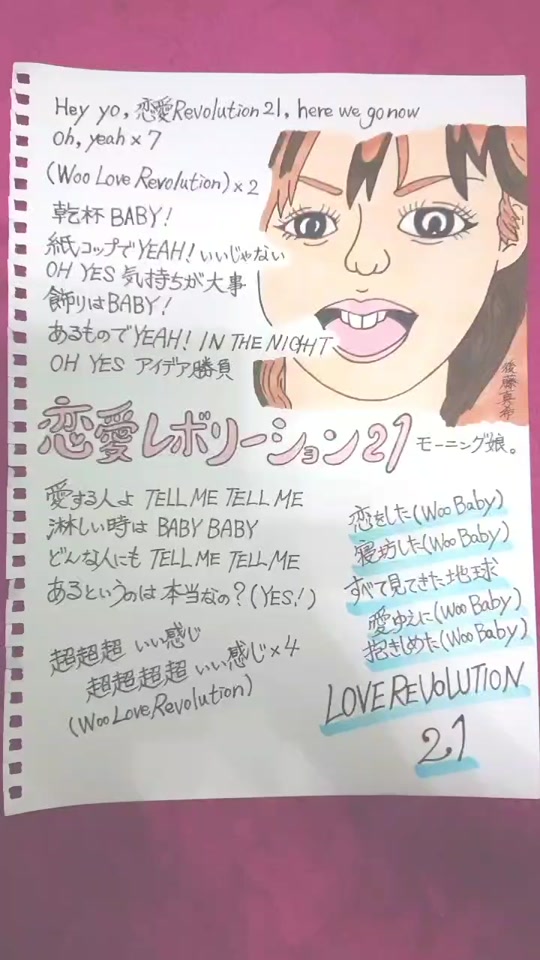 Hey yo, 恋愛Revolution21, here we go now
Oh, yeah×7
(Woo Love Revolution)×2
乾杯BABY!
紙コップでYEAH! いいじゃない
OH YES 気持ちが大事
飾りはBABY!
あるものでYEAH! IN THE NIGHT
OH YES アイデア勝負
後藤真希
恋愛レボリーション21 モーニング娘。
愛する人よ TELL ME TELL ME
淋しい時は BABY BABY
どんな人にも TELL ME TELL ME
あるというのは本当なの?(YES!)
超超超 いい感じ
超超超超 いい感じ×4
(Woo Love Revolution)
恋をした(Woo Baby)
寝坊した(Woo Baby)
すべて見てきた地球
愛ゆえに(Woo Baby)
抱きしめた(Woo Baby)
LOVE REVOLUTION
21